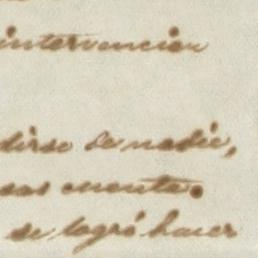 intervencion
dirse de nadie,
sas cuenta.
se logró hacer